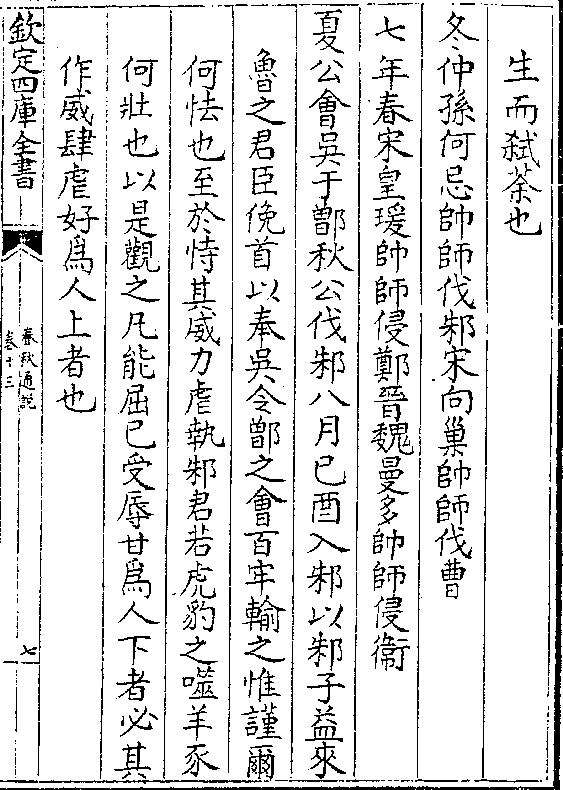 生而弑荼也
冬仲孫何忌帥師伐邾宋向巢帥師伐曹
七年春宋皇瑗帥師侵鄭晉魏曼多帥師侵衞
夏公會吳于鄫秋公伐邾八月已酉入邾以邾子益來
魯之君臣俛首以奉吳令鄫之會百牢輸之惟謹爾
何怯也至於恃其威力虐執邾君若虎豹之噬羊豕
何壯也以是觀之凡能屈已受辱甘爲人下者必其
作威肆虐好爲人上者也
欽定四庫全書
春秋通說
卷十三
七